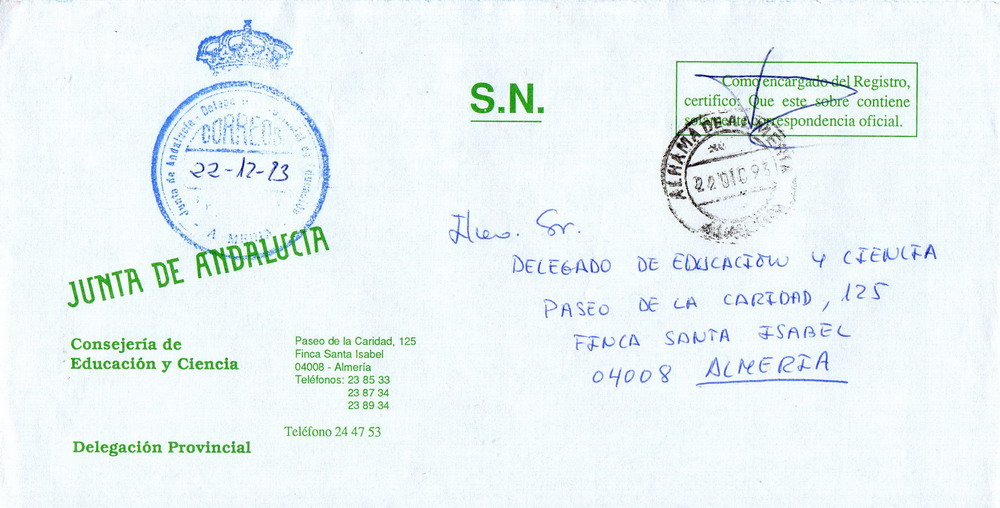 Junta de Andalucía - Delegación Provincial de Educación
CORREOS
22-12-93
ALMERIA
JUNTA DE ANDALUCIA
Consejería de
Educación y Ciencia
Delegación Provincial
Paseo de la Caridad, 125
Finca Santa Isabel
04008 - Almería
Teléfonos: 23 85 33
23 87 34
23 89 34
Teléfono 24 47 53
S.N.
Como encargado del Registro,
certifico: Que este sobre contiene
solamente correspondencia oficial.
ALHAMA DE ALMERIA
22 DIC 93
Ilmo. Sr.
DELEGADO DE EDUCACIÓN Y CIENCIA
PASEO DE LA CARIDAD, 125
FINCA SANTA ISABEL
04008 ALMERIA